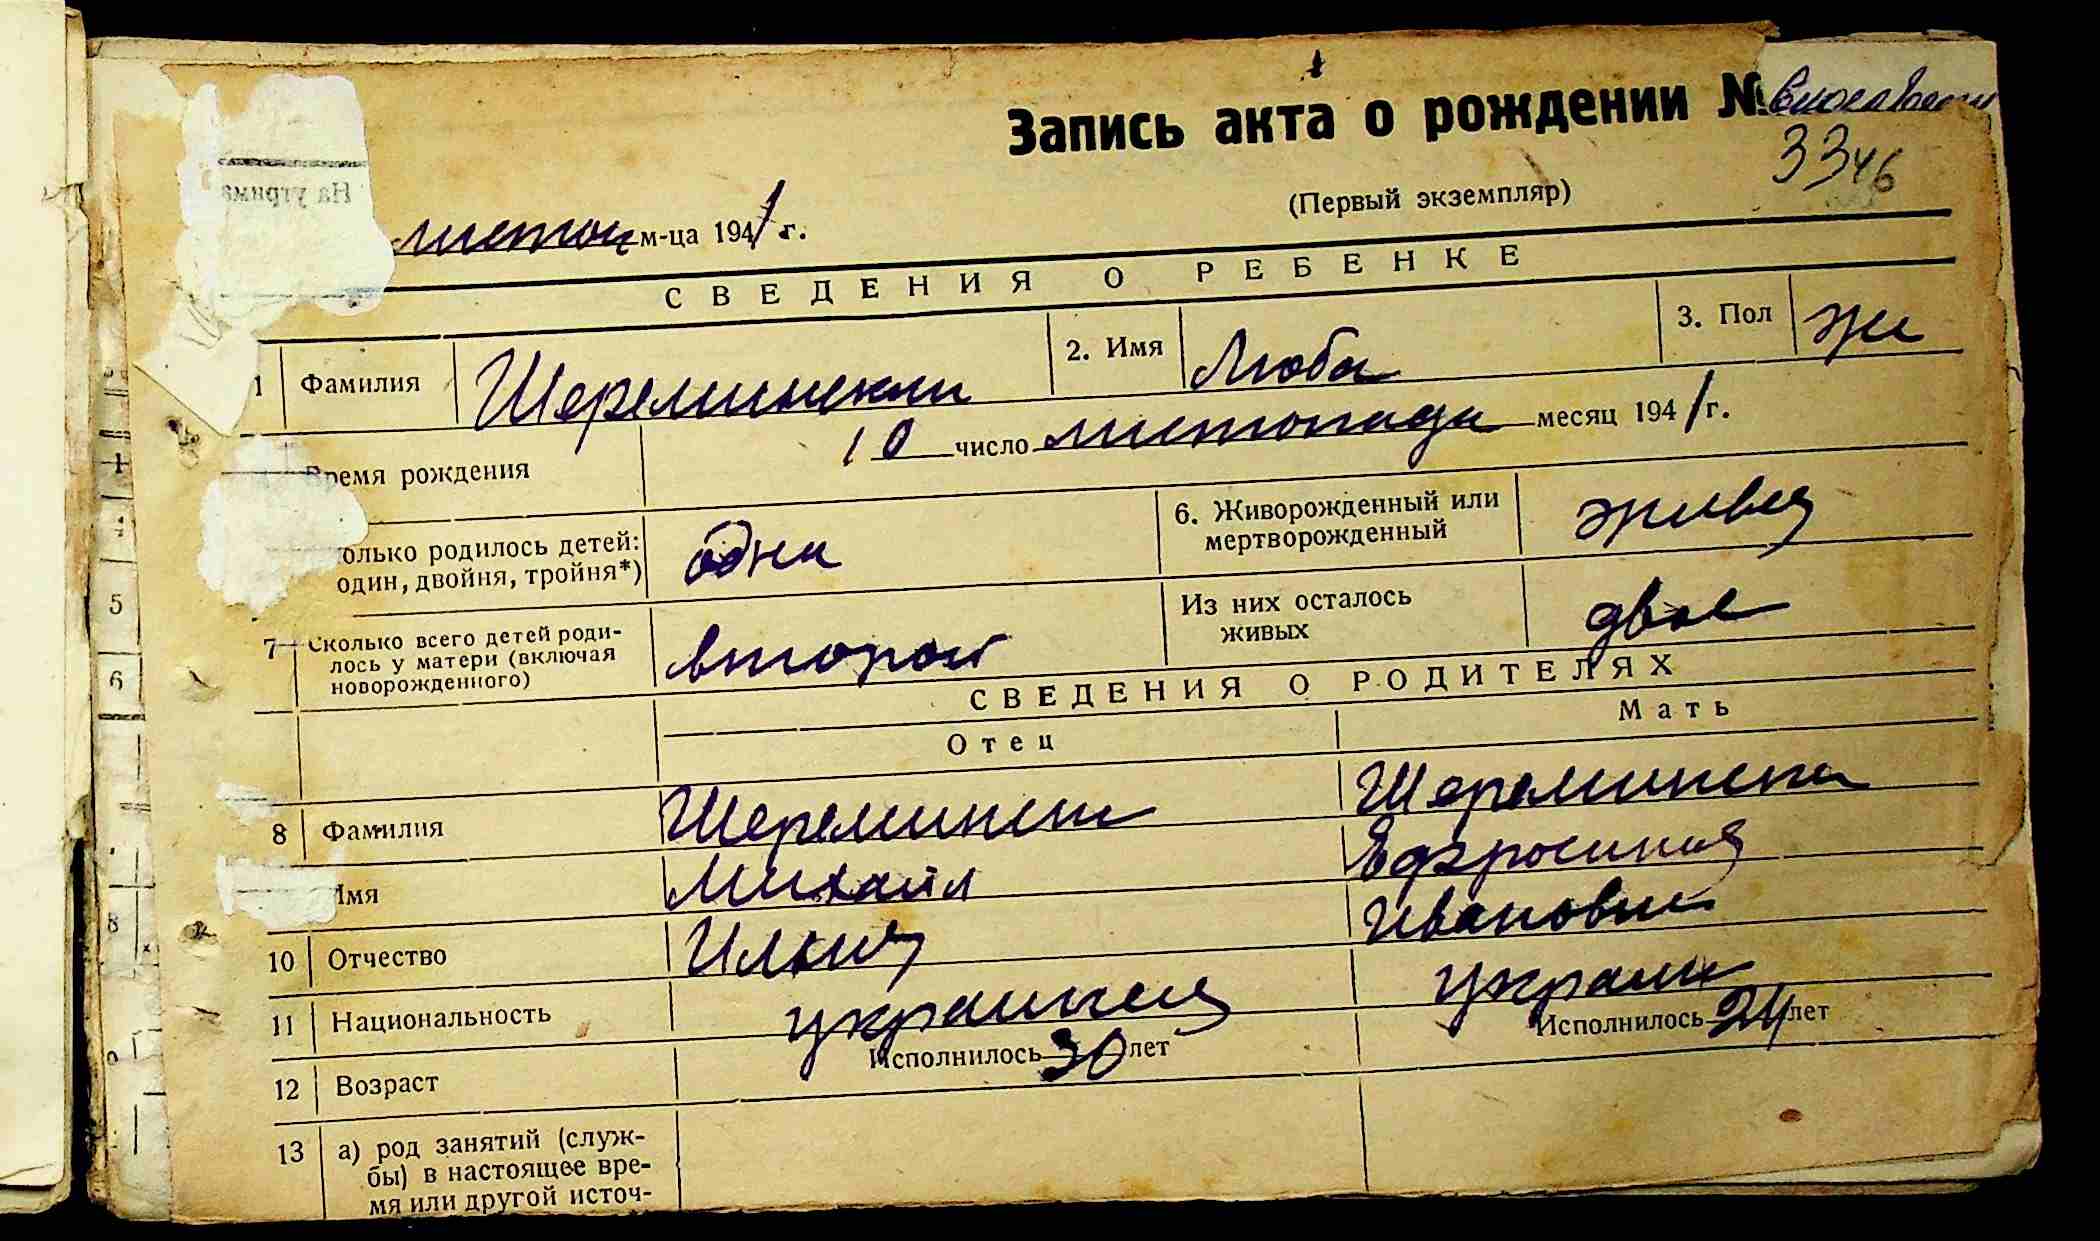 Запись акта о рождении №
3346
(Первый экземпляр)
На утрима
листоп м-ца 1941 г.
СВЕДЕНИЯ О РЕБЕНКЕ
1 Фамилия Шереминский 2. Имя Люба 3. Пол жи
Время рождения 10 число листопада месяц 1941 г.
колько родилось детей: один, двойня, тройня*) одна 6. Живорожденный или мертворожденный живая
7 Сколько всего детей родилось у матери (включая новорожденного) второй Из них осталось живых двое
СВЕДЕНИЯ О РОДИТЕЛЯХ
Отец Мать
8 Фамилия Шереминский Шереминска
Имя Михаил Ефросиния
10 Отчество Илькия Ивановна
11 Национальность украинец украин
12 Возраст Исполнилось 30 лет Исполнилось 24 лет
13 а) род занятий (служ-
бы) в настоящее вре-
мя или другой источ-
5
6
8
9